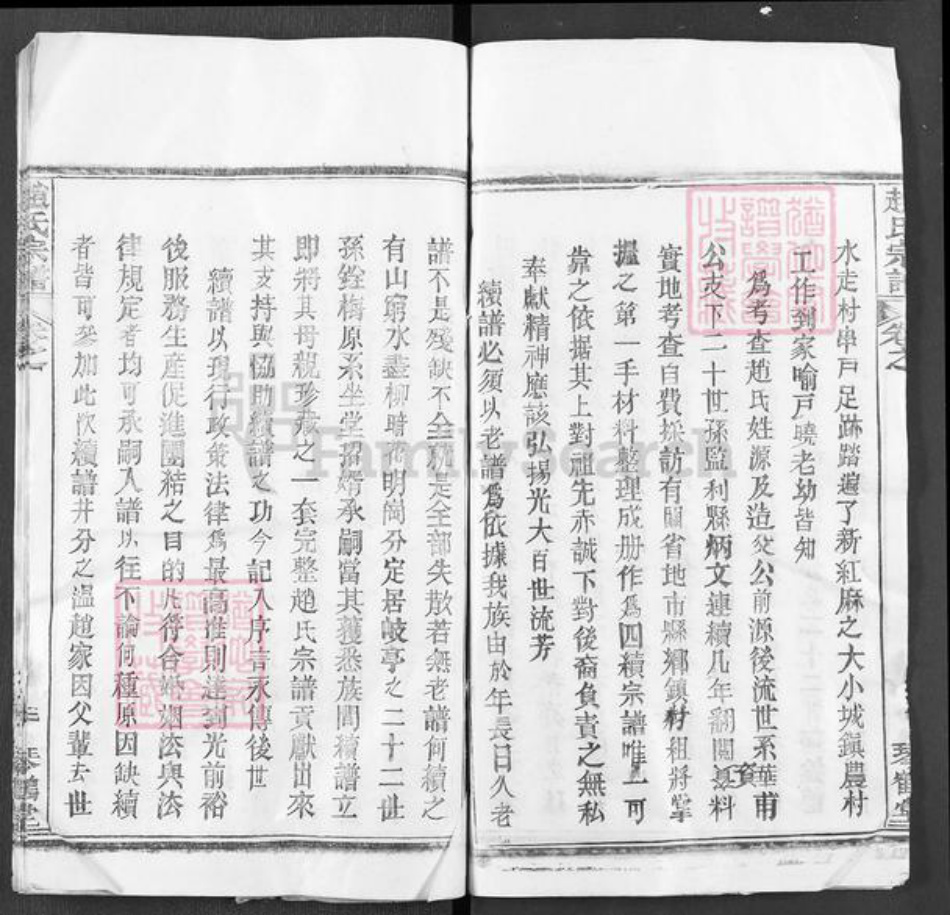 趙氏宗譜
卷之
琴鶴堂
水走村串戶足跡踏遍了新紅麻之大小城鎮農村
工作到家喻戶曉老幼皆知
爲考查趙氏姓源及造父公前源後流世系華甫
公支下二十世孫監利縣炳文連續几年翻閱資料
實地考查自費採訪有關省地市縣鄉鎮村組將掌
握之第一手材料整理成册作爲四續宗譜唯一可
靠之依据其上對祖先赤誠下對後裔負責之無私
奉獻精神應該弘揚光大百世流芳
續譜必須以老譜爲依據我族由於年長日久老
譜不是殘缺不全就是全部失散若無老譜何續之
有山窮水盡柳暗花明尚分定居岐亭之二十二世
孫銓梅原系坐堂招婿承嗣當其獲悉族間續譜立
即將其母親珍藏之一套完整趙氏宗譜貢獻出來
其支持與協助續譜之功今記入序言永傳後世
續譜以現行政策法律爲最高准則達到光前裕
後服務生産促進團結之目的凡符合婚姻法與法
律規定者均可承嗣入譜以往不論何種原因缺續
者皆可參加此次續譜井分之溫趙家因父輩去世
趙氏宗譜
卷之
琴鶴堂
FamilySearch